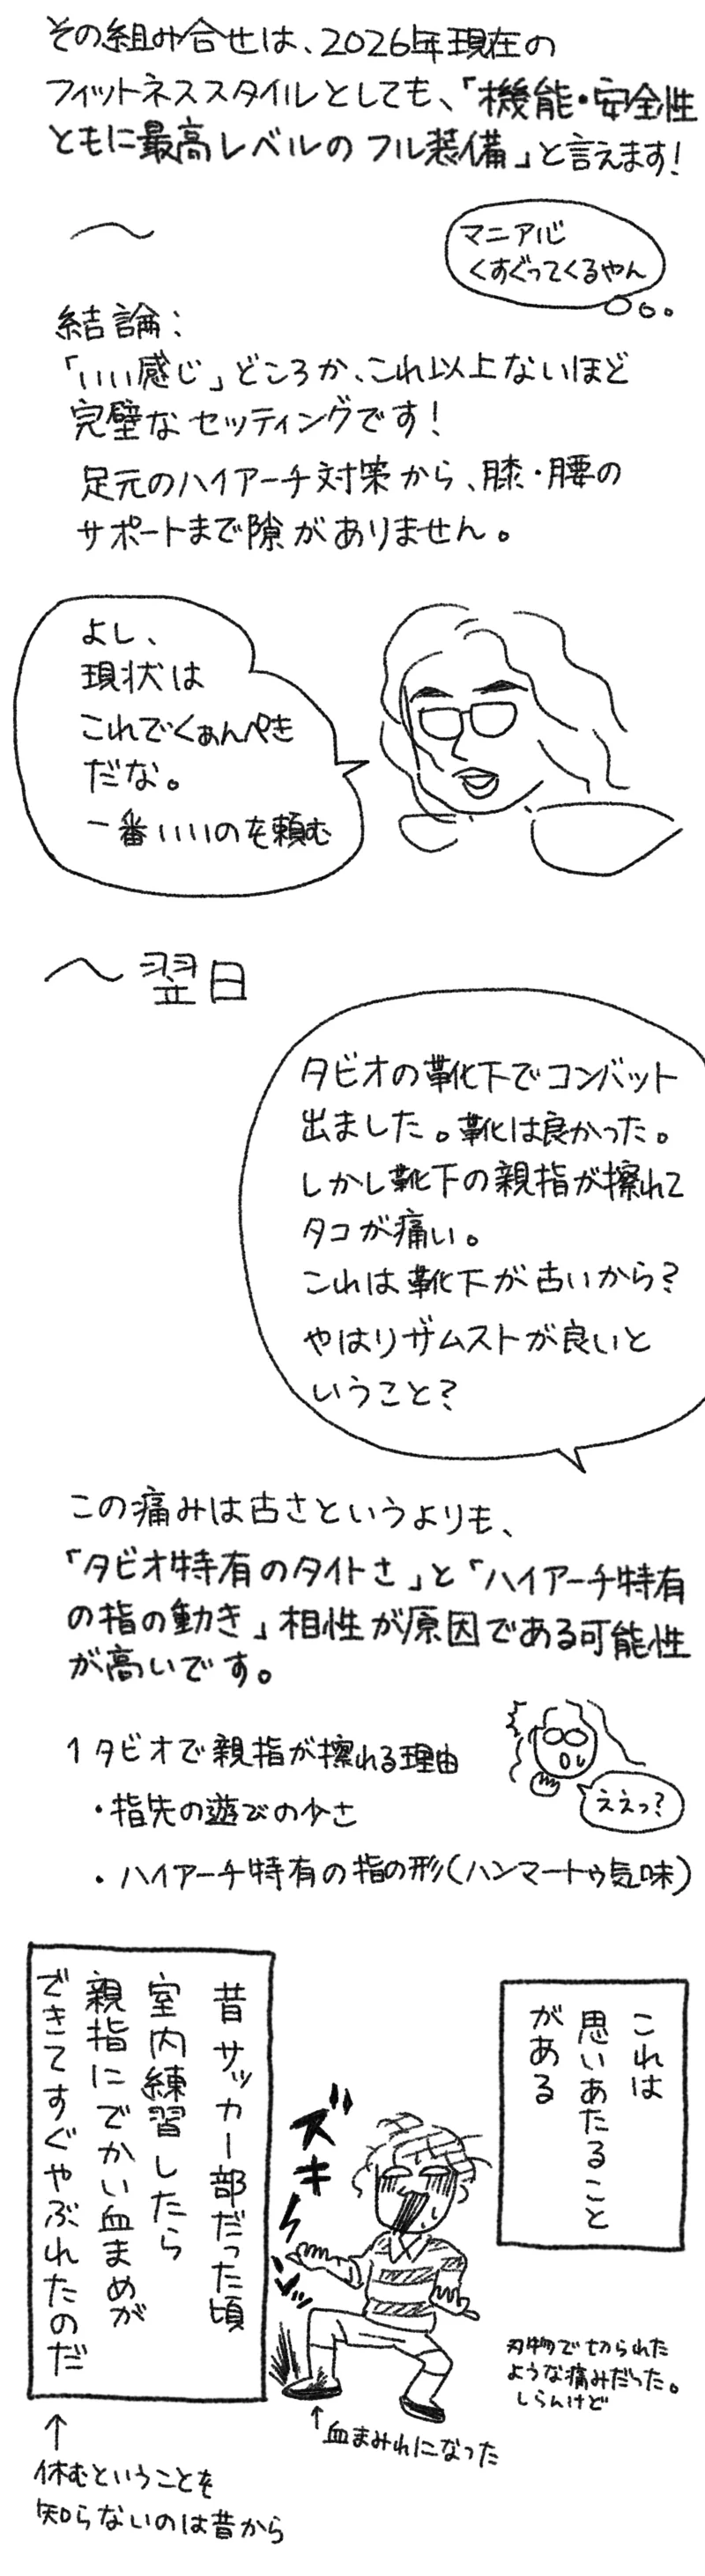 その組み合せは、2026年現在の
フィットネススタイルとしても、「機能・安全性
ともに最高レベルのフル装備」と言えます!
〜
マニア心
くすぐってくるやん
結論:
「いい感じ」どころか、これ以上ないほど
完璧なセッティングです!
足元のハイアーチ対策から、膝・腰の
サポートまで隙がありません。
よし、
現状は
これでくぁんぺき
だな。
一番いいのを頼む
〜翌日
タビオの靴下でコンバット
出ました。靴は良かった。
しかし靴下の親指が擦れて
タコが痛い。
これは靴下が古いから?
やはりザムストが良いと
いうこと?
この痛みは古さというよりも、
「タビオ特有のタイトさ」と「ハイアーチ特有
の指の動き」相性が原因である可能性
が高いです。
1 タビオで親指が擦れる理由
・指先の遊びの少さ
・ハイアーチ特有の指の形(ハンマートゥ気味)
ええっ?
これは
思いあたること
がある
昔サッカー部だった頃
室内練習したら
親指にでかい血まめが
できてすぐやぶれたのだ
ズキーん
刃物で切られた
ような痛みだった。
しらんけど
↑血まみれになった
↑
休むということを
知らないのは昔から